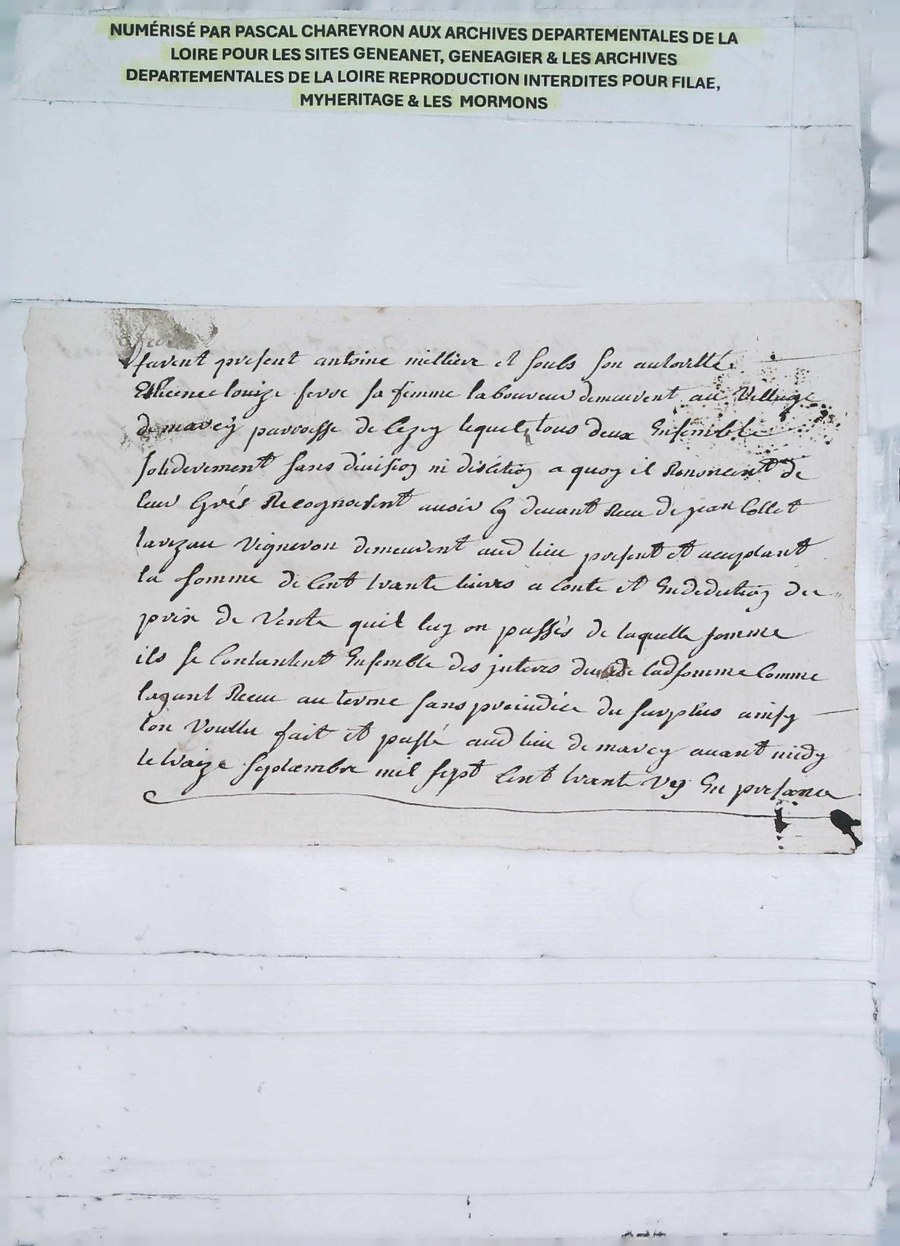 NUMÉRISÉ PAR PASCAL CHAREYRON AUX ARCHIVES DEPARTEMENTALES DE LA
LOIRE POUR LES SITES GENEANET, GENEAGIER & LES ARCHIVES
DEPARTEMENTALES DE LA LOIRE REPRODUCTION INTERDITES POUR FILAE,
MYHERITAGE & LES MORMONS
furent present antoine milliere et soubs son autoritté
louize serve sa femme laboureur demeurent au Village
de marcy parroisse de Cezey lequel tous deux Ensemble
soliderement sans division ni discution a quoy il Renoncent de
leur Grés Recognoissent avoir Cy devant Receu de jean Collet
Vigneron demeurent aud lieu present et aceptant
la somme de Cent trante livres a Conte et En deduction du
prix de Vente quil luy on passés de laquelle somme
ils se Contantent Ensemble des interes de ladsomme Comme
layant Receu au terme sans prejudice du surplus ainsy
lon Voullu fait et passé aud lieu de marcy avant midy
le traize Septembre mil sept Cent trante En presance